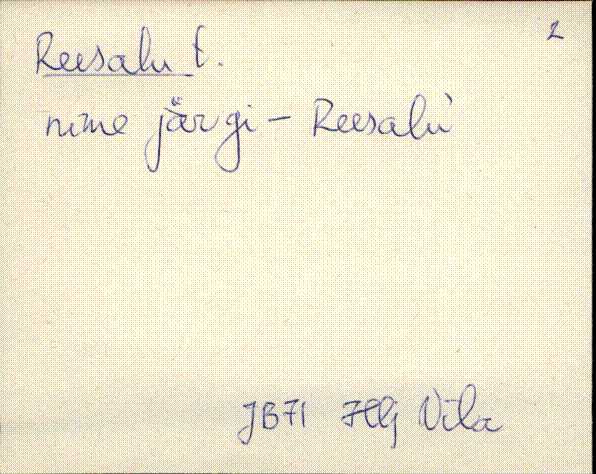 2
Reesalu t.
nime järgi – Reesalu
JB71 HG Vila